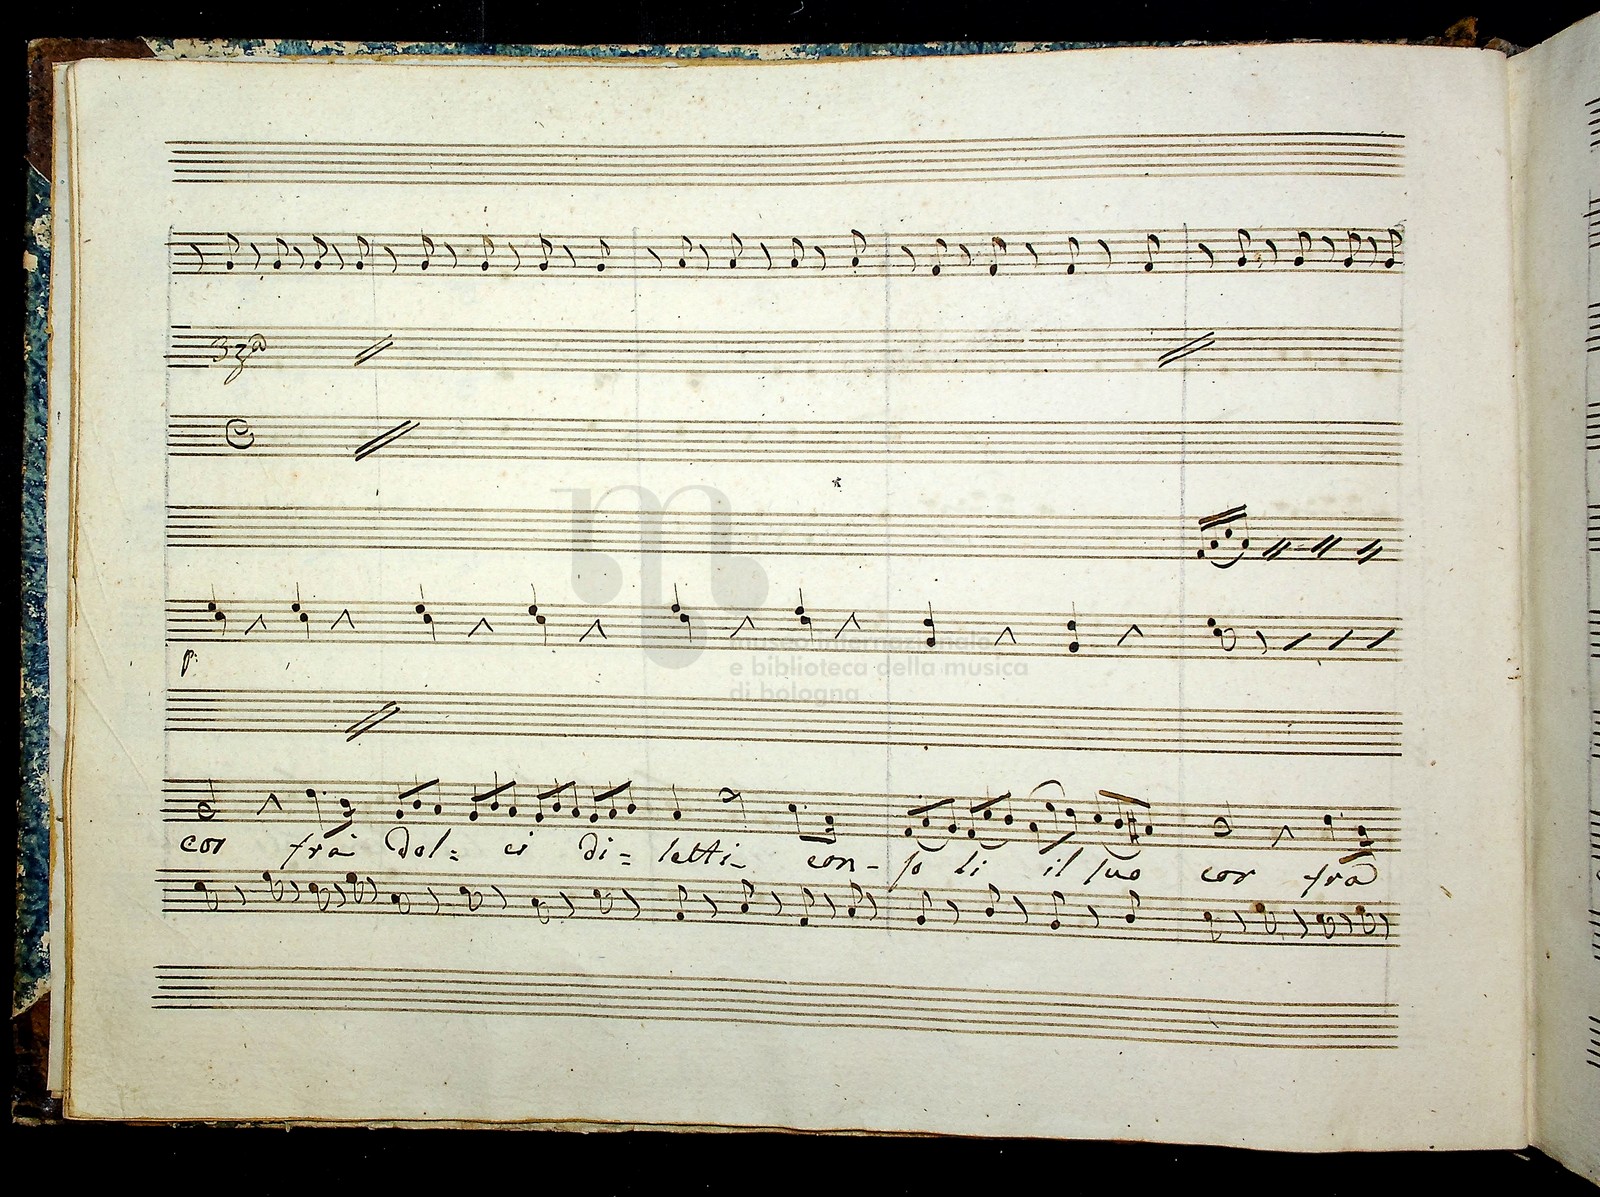 3za
p.
museo internazionale
e biblioteca della musica
di bologna
cor frà Dol= ci di= letti_ con- so li il tuo cor frà